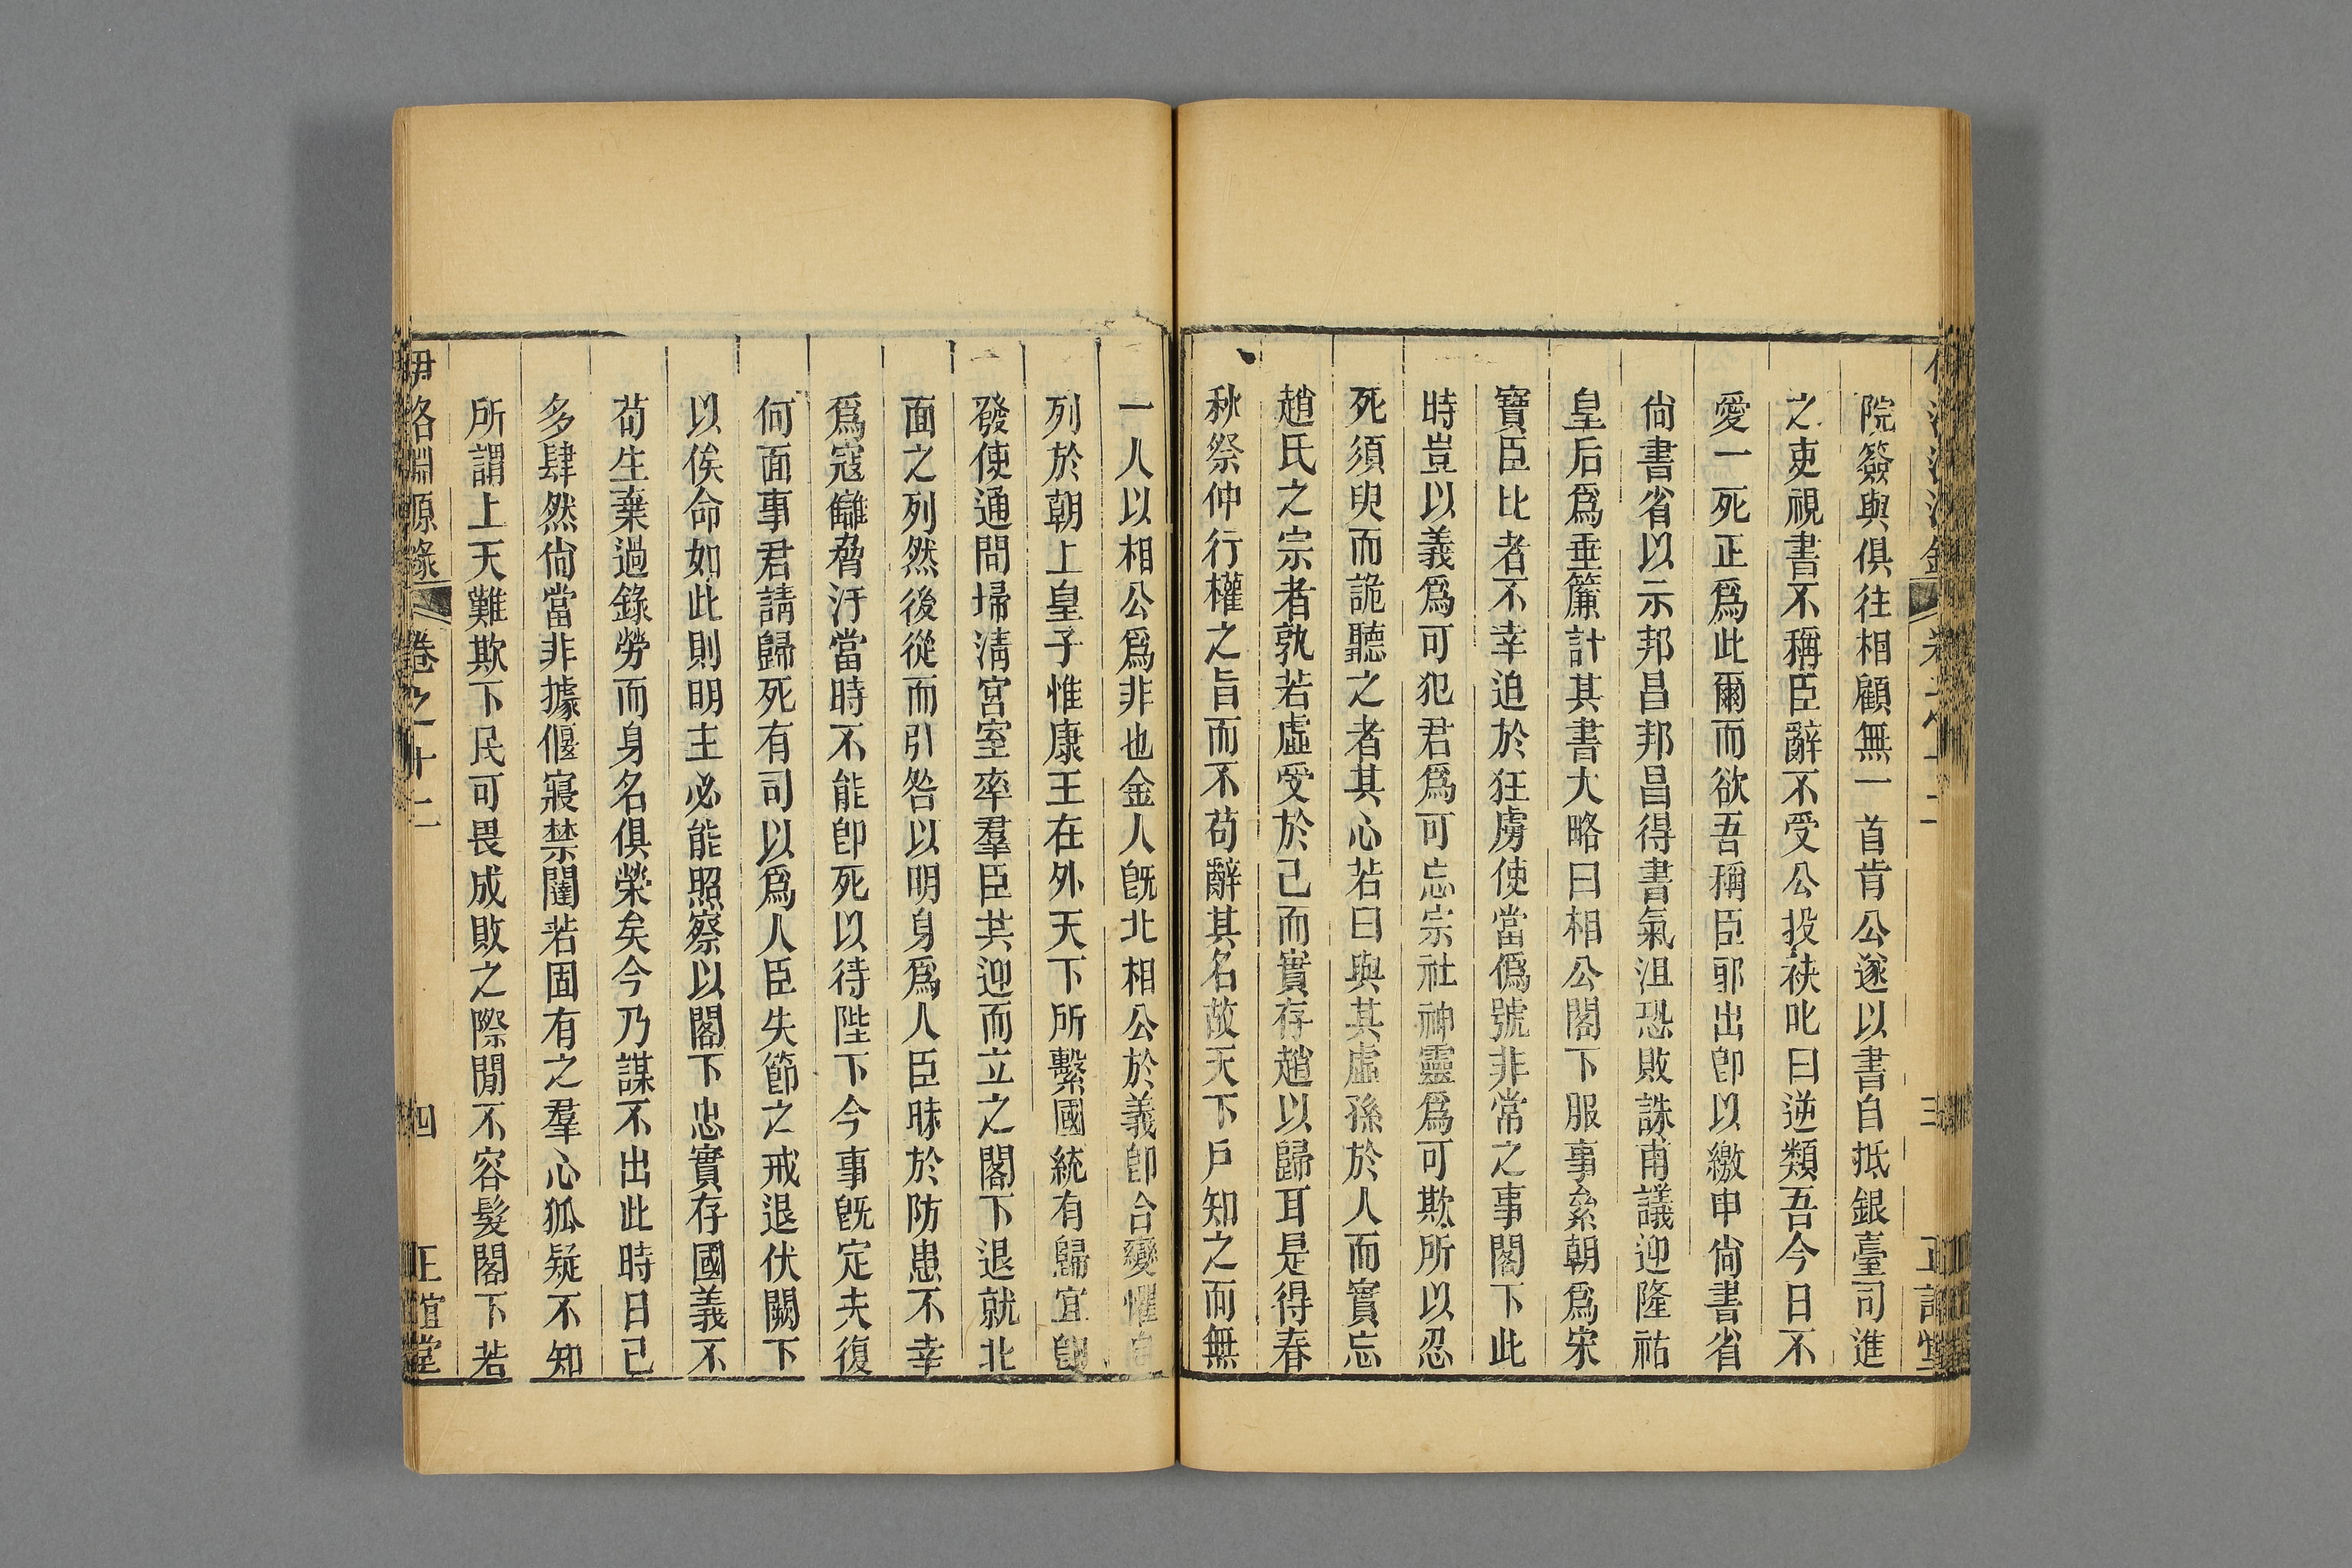 院簽與俱往相顧無一首肯公遂以書自抵銀臺司進
之吏視書不稱臣辭不受公投袂叱曰逆類吾今日不
愛一死正爲此爾而欲吾稱臣耶出卽以繳申尙書省
尙書省以示邦昌邦昌得書氣沮恐敗誅甫議迎隆祐
皇后爲垂簾計其書大略曰相公閣下服事累朝爲宋
寶臣比者不幸迫於狂虜使當僞號非常之事閣下此
時豈以義爲可犯君爲可忘宗社神靈爲可欺所以忍
死須臾而詭聽之者其心若曰與其虛孫於人而實忘
趙氏之宗者孰若虛受於己而實存趙以歸耳是得春
秋祭仲行權之旨而不苟辭其名故天下戶知之而無
一人以相公爲非也金人旣北相公於義卽合變懼自
列於朝上皇子惟康王在外天下所繫國統有歸宜卽
發使通問埽淸宮室率羣臣共迎而立之閣下退就北
面之列然後從而引咎以明身爲人臣昧於防患不幸
爲寇讎脅汙當時不能卽死以待陛下今事旣定夫復
何面事君請歸死有司以爲人臣失節之戒退伏闕下
以俟命如此則明主必能照察以閣下忠實存國義不
苟生棄過錄勞而身名俱榮矣今乃謀不出此時日已
多肆然尙當非據偃寢禁闥若固有之羣心狐疑不知
所謂上天難欺下民可畏成敗之際閒不容髮閣下若
伊洛淵源錄 卷之十二 四 正誼堂